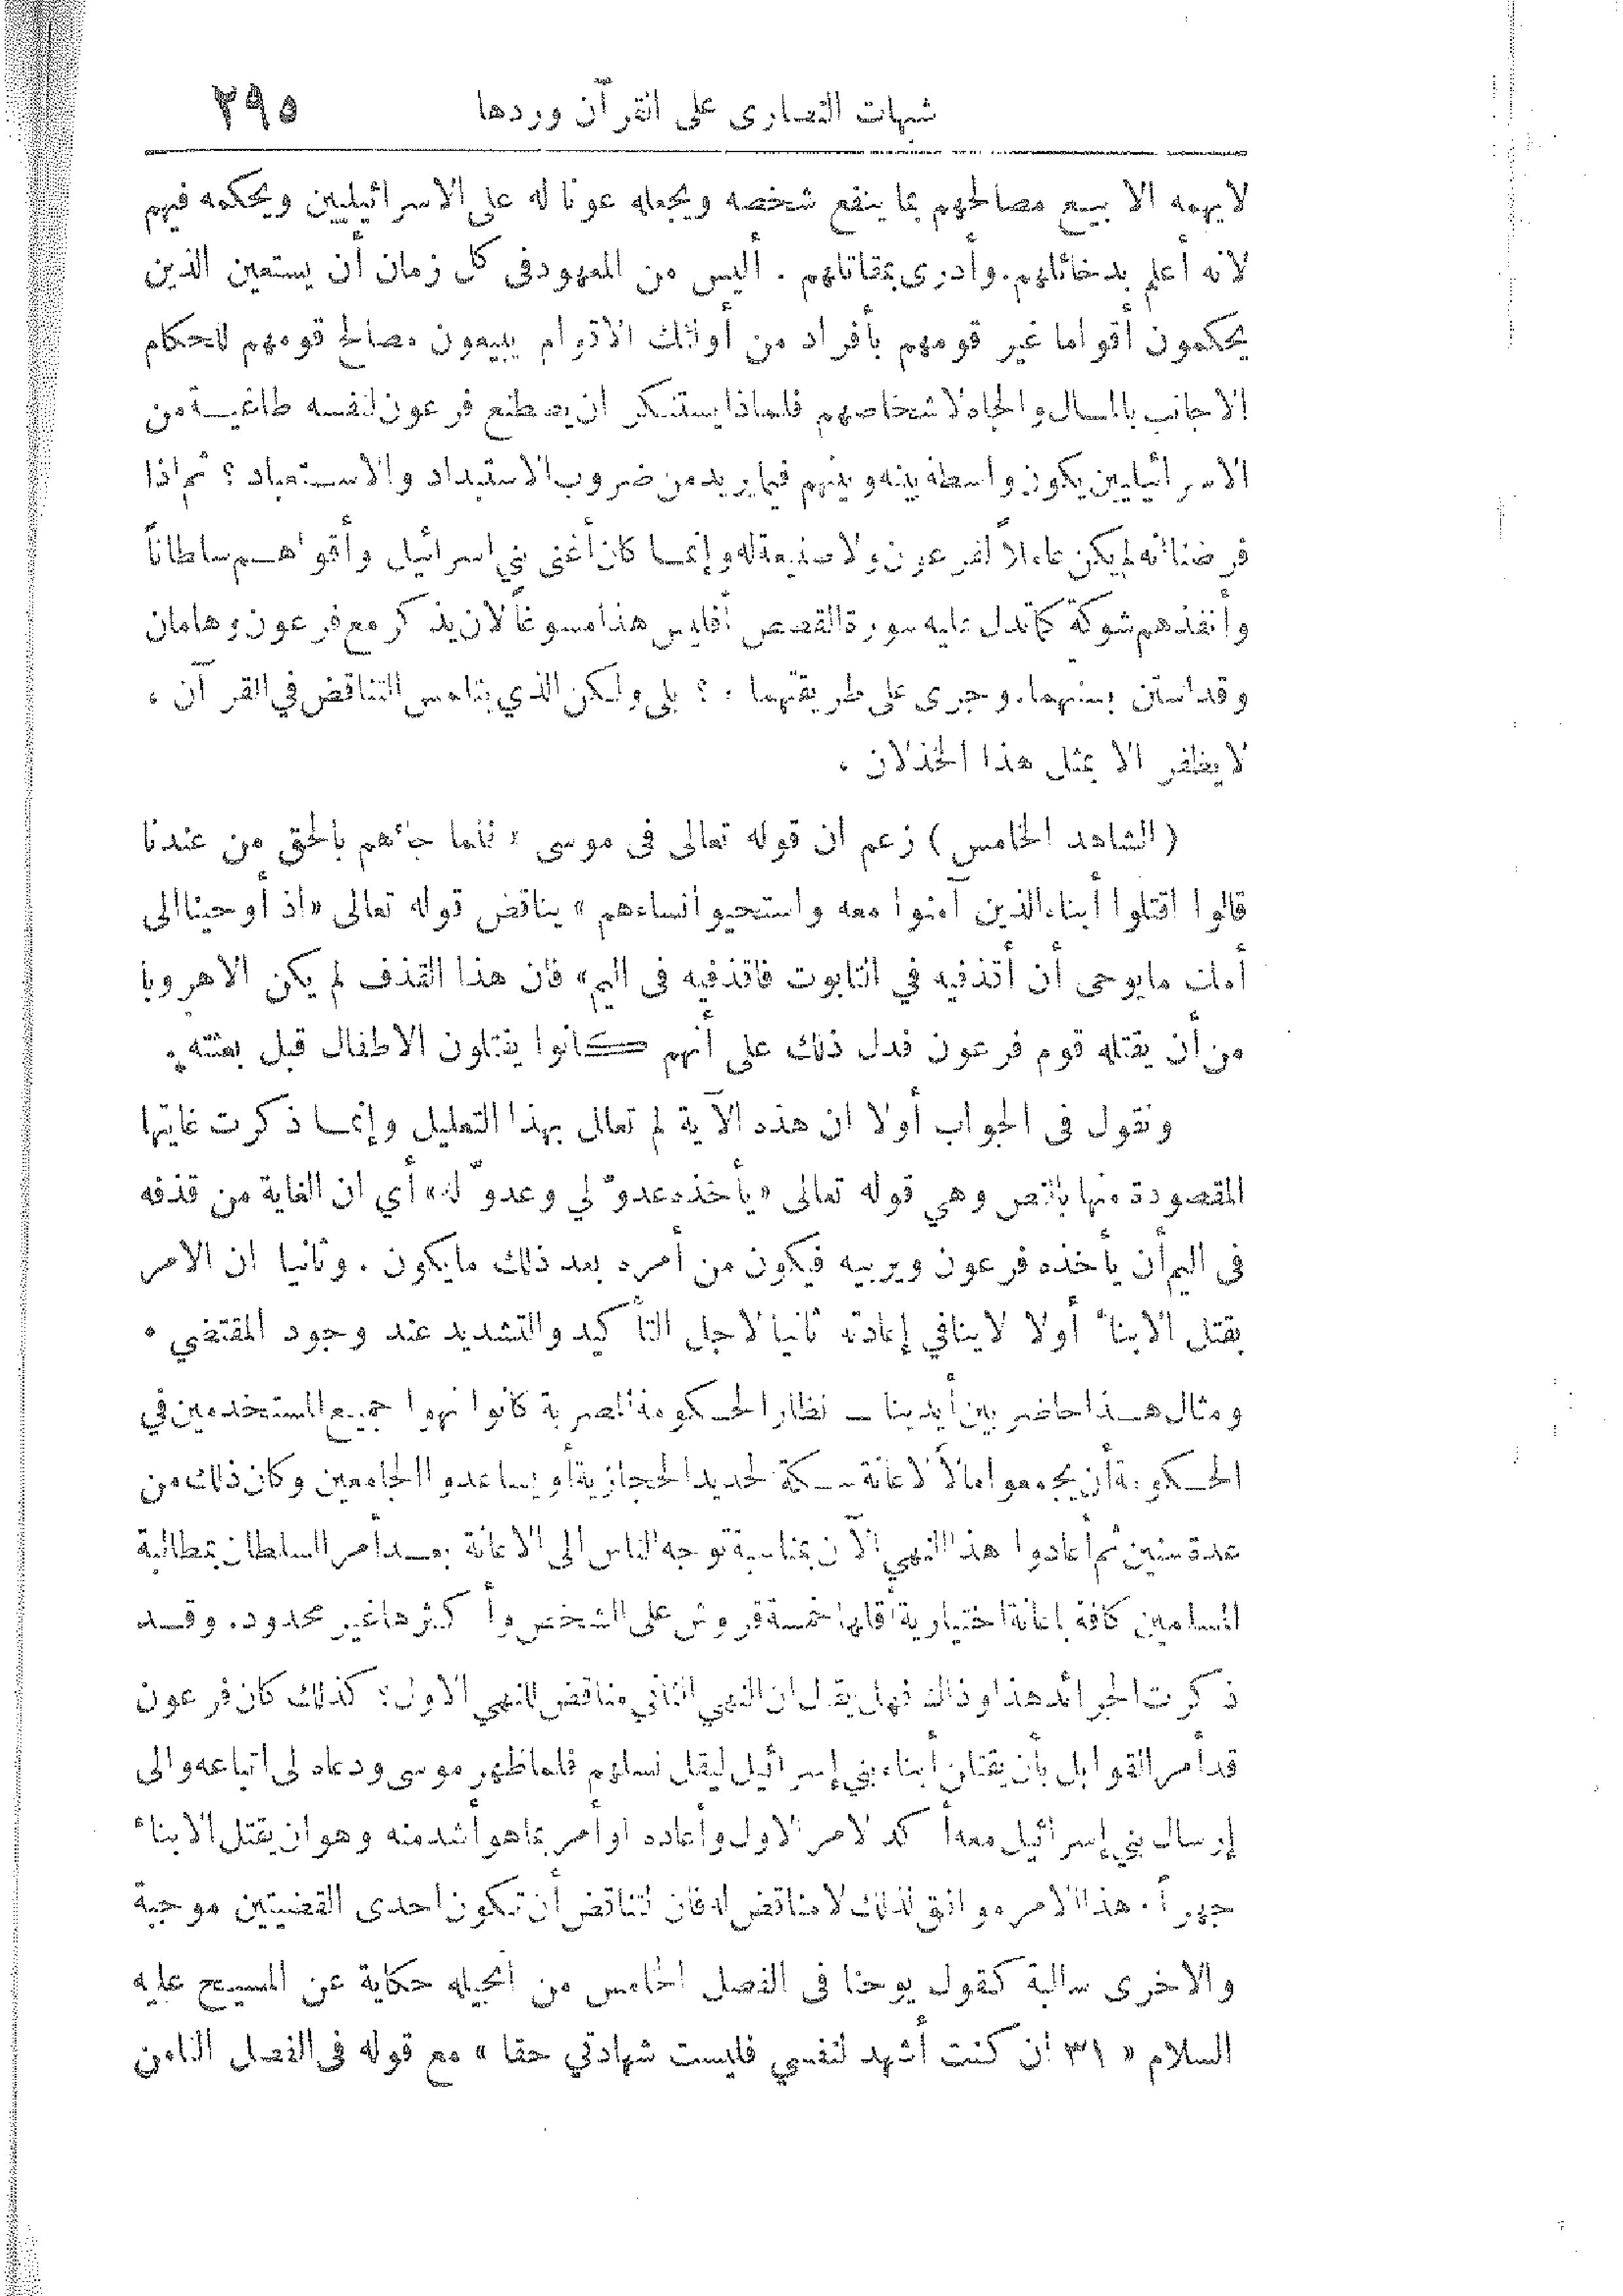 شبهات النصارى على القرآن وردها ٢٩٥
لا يهمه الا بيع مصالحهم بما ينفع شخصه ويجعله عونا له على الاسرائيليين ويحكمه فيهم
لانه أعلم بدخائلهم. وأدرى بمقاتلهم . أليس من المعهود فى كل زمان أن يستعين الذين
يحكمون أقواما غير قومهم بأفراد من أولئك الاقوام يبيعون مصالح قومهم للحكام
الاجانب بالمال والجاه لاشخاصهم فلماذا يستنكر ان يصطنع فرعون لنفسه طاغية من
الاسرائيليين يكون واسطة بينه وبينهم فيما يريد من ضروب الاستبداد والاستعباد ؟ ثم اذا
فرضنا انه لم يكن عاملا لفرعون ولا صنيعة له وإنما كان أغنى بني اسرائيل وأقواهم سلطاناً
وأنفذهم شوكة كما تدل عليه سورة القصص أفليس هذا مسوغاً لان يذكر مع فرعون وهامان
وقد استن بسنتهما. وجرى على طريقتهما . ؟ بلى ولكن الذي يتلمس التناقض في القرآن ،
لا يظفر الا بمثل هذا الخذلان .
(الشاهد الخامس) زعم ان قوله تعالى فى موسى « فلما جاءهم بالحق من عندنا
قالوا اقتلوا أبناء الذين آمنوا معه واستحيوا نساءهم » يناقض قوله تعالى «اذ أوحينا الى
أمك ما يوحى أن أقذفيه في التابوت فاقذفيه فى اليم» فان هذا القذف لم يكن الا هروبا
من أن يقتله قوم فرعون فدل ذلك على أنهم كانوا يقتلون الاطفال قبل بعثته .
ونقول فى الجواب أولا ان هذه الآية لم تعلل بهذا التعليل وإنما ذكرت غايتها
المقصودة منها بالنص وهي قوله تعالى «يأخذه عدوّ لي وعدوّ له» أي ان الغاية من قذفه
فى اليم أن يأخذه فرعون ويربيه فيكون من أمره بعد ذلك ما يكون . وثانيا ان الامر
بقتل الابناء أولا لا ينافي إعادته ثانيا لاجل التأكيد والتشديد عند وجود المقتضي .
ومثال هذا حاضر بين أيدينا ــ نظار الحكومة المصرية كانوا نهوا جميع المستخدمين في
الحكومة أن يجمعوا مالاً لاعانة سكة الحديد الحجازية أو يساعدوا الجامعين وكان ذلك من
عدة سنين ثم أعادوا هذا النهي الآن بمناسبة توجه الناس الى الاعانة بعد أمر السلطان بمطالبة
المسلمين كافة باعانة اختيارية أقلها خمسة قروش على الشخص وأكثرها غير محدود. وقد
ذكرت الجرائد هذا وذاك فهل يقال ان النهي الثاني مناقض للنهي الاول؟ كذلك كان فرعون
قد أمر القوابل بأن يقتلن أبناء بني إسرائيل ليقل نسلهم فلما ظهر موسى ودعاه لى اتباعه والى
إرسال بني إسرائيل معه أكد الامر الاول وأعاده او أمر بما هو أشد منه وهو ان يقتل الابناء
جهراً . هذا الامر موافق لذلك لا مناقض له فان التناقض أن تكون احدى القضيتين موجبة
والاخرى سالبة كقول يوحنا فى الفصل الخامس من انجيله حكاية عن المسيح عليه
السلام « ٣١ ان كنت أشهد لنفسي فليست شهادتي حقا » مع قوله فى الفصل الثامن